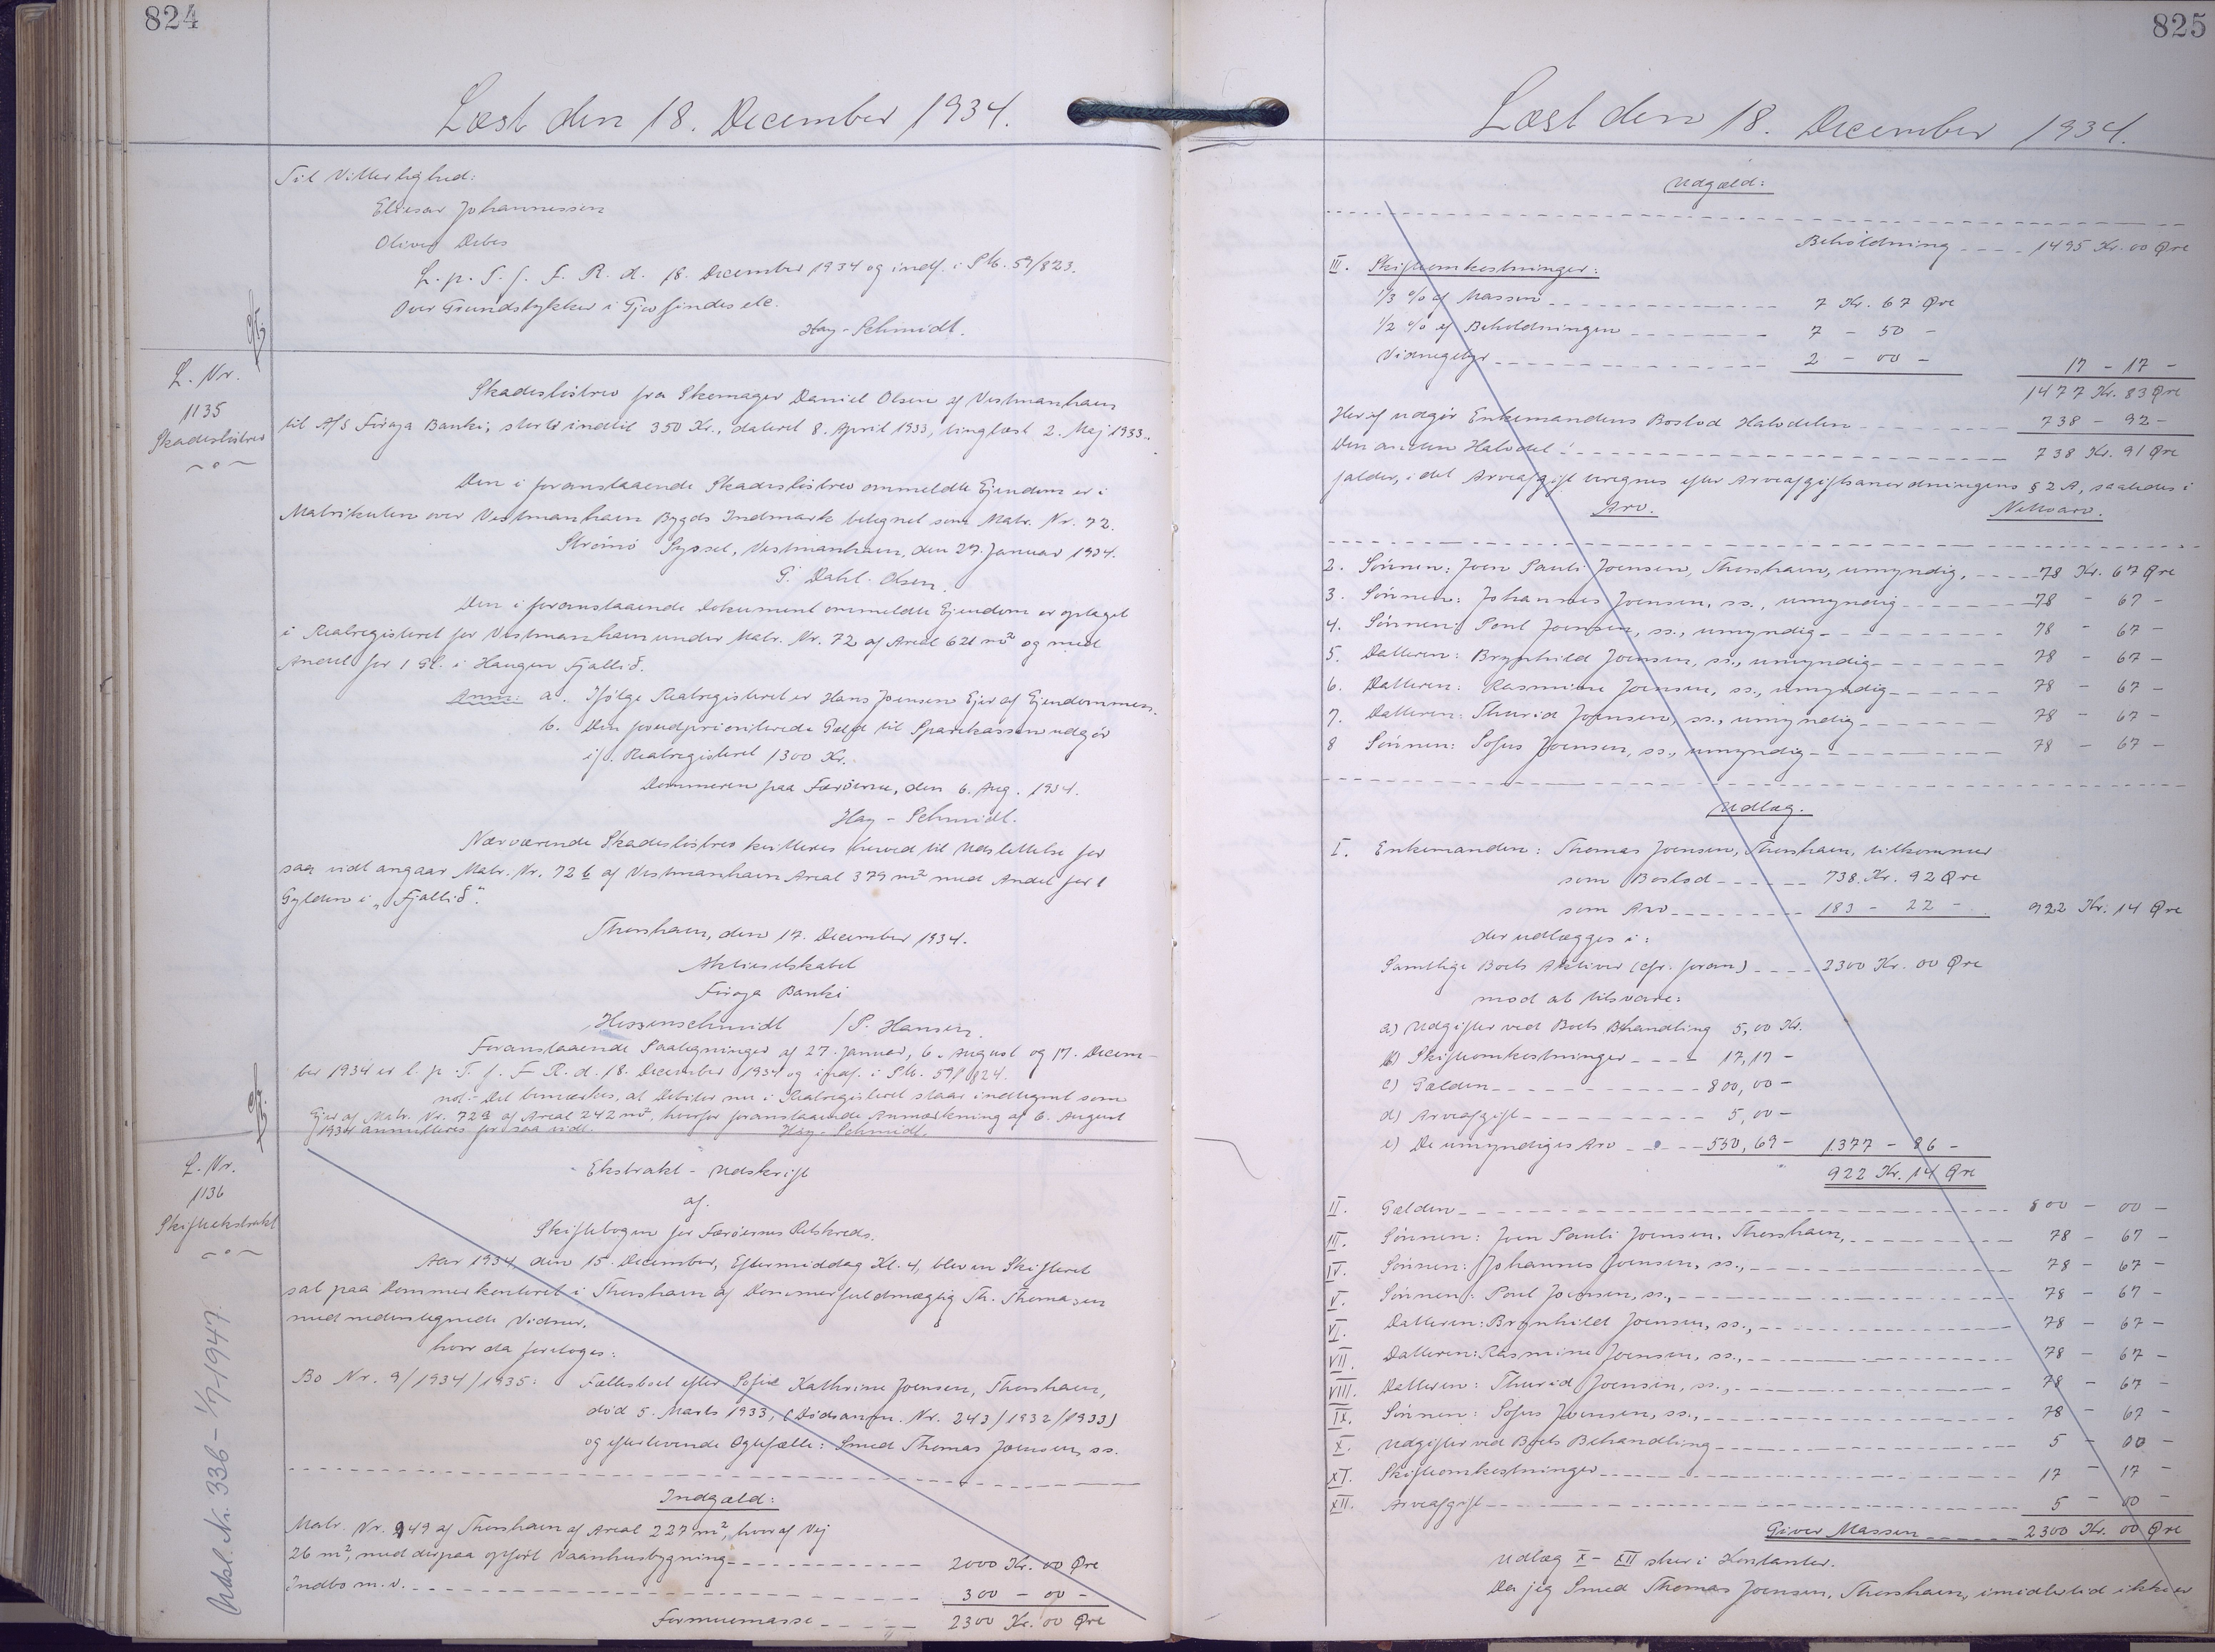 824
Læst den 18. December 1934.
Til Vitterlighed:
Eliesar Johannessen
Oliver Debes
L. p. T. f. F. R. d. 18. December 1934 og indf. i Skb. 59/823.
Over Grundstykker i Gjov findes etc.
Hay-Schmidt.
L. Nr.
1135
Skadesløsbrev
Skadesløsbrev fra Skomager Daniel Olsen af Vestmanhavn
til A/S Føroya Banki, stort indtil 350 Kr., dateret 8. April 1933, tinglæst 2. Maj 1933.
Den i foranstaaende Skadesløsbrev ommeldte Ejendom er i
Matrikulen over Vestmanhavn Bygds Indmark betegnet som Matr. Nr. 72.
Strømø Syssel, Vestmanhavn, den 27. Januar 1934.
G. Dahl-Olsen.
Den i foranstaaende Dokument ommeldte Ejendom er optaget
i Realregisteret for Vestmanhavn under Matr. Nr. 72 af Areal 621 m² og med
Andel for 1 Gl. i Haugen Fjallið.
Anm: a. Ifølge Realregisteret er Hans Joensen Ejer af Ejendommen.
b. Den foranprioriterede Gæld til Sparekassen udgør
ifl. Realregisteret 1300 Kr.
Dommeren paa Færøerne, den 6. Aug. 1934.
Hay-Schmidt.
Nærværende Skadesløsbrev kvitteres herved til Udslettelse for
saa vidt angaar Matr. Nr. 72 b af Vestmanhavn Areal 379 m² med Andel for 1
Gylden i "Fjallið".
Thorshavn, den 17. December 1934.
Aktieselskabet
Føroya Banki
Hessenschmidt / P. Hansen.
Foranstaaende Paategninger af 27. Januar, 6. August og 17. Decem-
ber 1934 er l. p. T. f. F. R. d. 18. December 1934 og indf. i Skb. 59/824.
not:- Det bemærkes, at Debitor nu i Realregisteret staar indtegnet som
Ejer af Matr. Nr. 72a af Areal 242 m², hvorfor foranstaaende Anmærkning af 6. August
1934 annulleres for saa vidt. Hay-Schmidt.
L. Nr.
1136
Skifteekstrakt
Ekstrakt-Udskrift
af
Skiftebogen for Færøernes Retskreds.
Aar 1934, den 15. December, Eftermiddag Kl. 4, blev en Skifteret
sat paa Dommerkontoret i Thorshavn af Dommerfuldmægtig Th. Thomassen
med nedentegnede Vidner,
hvor da foretoges:
Bo Nr. 9/1934/1935: Fællesboet efter Sofie Kathrine Joensen, Thorshavn,
død 5. Marts 1933, (Dødsanm. Nr. 243/1932/1933)
og efterlevende Ægtefælle: Smed Thomas Joensen, ss.
Indgæld:
Matr. Nr. 949 af Thorshavn af Areal 227 m², hvoraf Vej
26 m², med derpaa opført Vaanhusbygning 2000 Kr. 00 Øre
Indbo m.v. 300 - 00 -
Formuemasse 2300 Kr. 00 Øre
Nr. 336 - 1/7-1947.
825
Læst den 18. December 1934.
Udgæld:
Beholdning 1495 Kr. 00 Øre
III. Skifteomkostninger:
1/3 % af Massen 7 Kr. 67 Øre
1/2 % af Beholdningen 7 - 50 -
Vidnegebyr 2 - 00 - 17 - 17 -
1477 Kr. 83 Øre
Heraf udgør Enkemandens Boslod Halvdelen 738 - 92 -
Den anden Halvdel 738 Kr. 91 Øre
falder, idet Arveafgift beregnes efter Arveafgiftsanordningens § 2 A, saaledes i
Arv. Nettoarv.
2. Sønnen: Joen Pauli Joensen, Thorshavn, umyndig, 78 Kr. 67 Øre
3. Sønnen: Johannes Joensen, ss., umyndig 78 - 67 -
4. Sønnen: Poul Joensen, ss., umyndig 78 - 67 -
5. Datteren: Brynhild Joensen, ss., umyndig 78 - 67 -
6. Datteren: Rasmine Joensen, ss., umyndig 78 - 67 -
7. Datteren: Thurid Joensen, ss., umyndig 78 - 67 -
8 Sønnen: Sofus Joensen, ss., umyndig 78 - 67 -
Udlæg.
I. Enkemanden: Thomas Joensen, Thorshavn, tilkommer
som Boslod 738 Kr. 92 Øre
som Arv 183 - 22 - 922 Kr. 14 Øre
der udlægges i:
Samtlige Boets Aktiver (cfr. foran) 2300 Kr. 00 Øre
mod at tilsvare:
a) Udgifter ved Boets Behandling 5,00 Kr.
b) Skifteomkostninger 17,17 -
c) Gælden 800,00 -
d) Arveafgift 5,00 -
e) De umyndiges Arv 550,69 - 1377 - 86 -
922 Kr. 14 Øre
II. Gælden 800 - 00 -
III. Sønnen: Joen Pauli Joensen, Thorshavn, 78 - 67 -
IV. Sønnen: Johannes Joensen, ss., 78 - 67 -
V. Sønnen: Poul Joensen, ss., 78 - 67 -
VI. Datteren: Brynhild Joensen, ss., 78 - 67 -
VII. Datteren: Rasmine Joensen, ss., 78 - 67 -
VIII. Datteren: Thurid Joensen, ss., 78 - 67 -
IX. Sønnen: Sofus Joensen, ss., 78 - 67 -
X. Udgifter ved Boets Behandling 5 - 00 -
XI. Skifteomkostninger 17 - 17 -
XII. Arveafgift 5 - 00 -
Giver Massen 2300 Kr. 00 Øre
Udlæg X - XII sker i Kontanter.
Da jeg Smed Thomas Joensen, Thorshavn, imidlertid ikke er